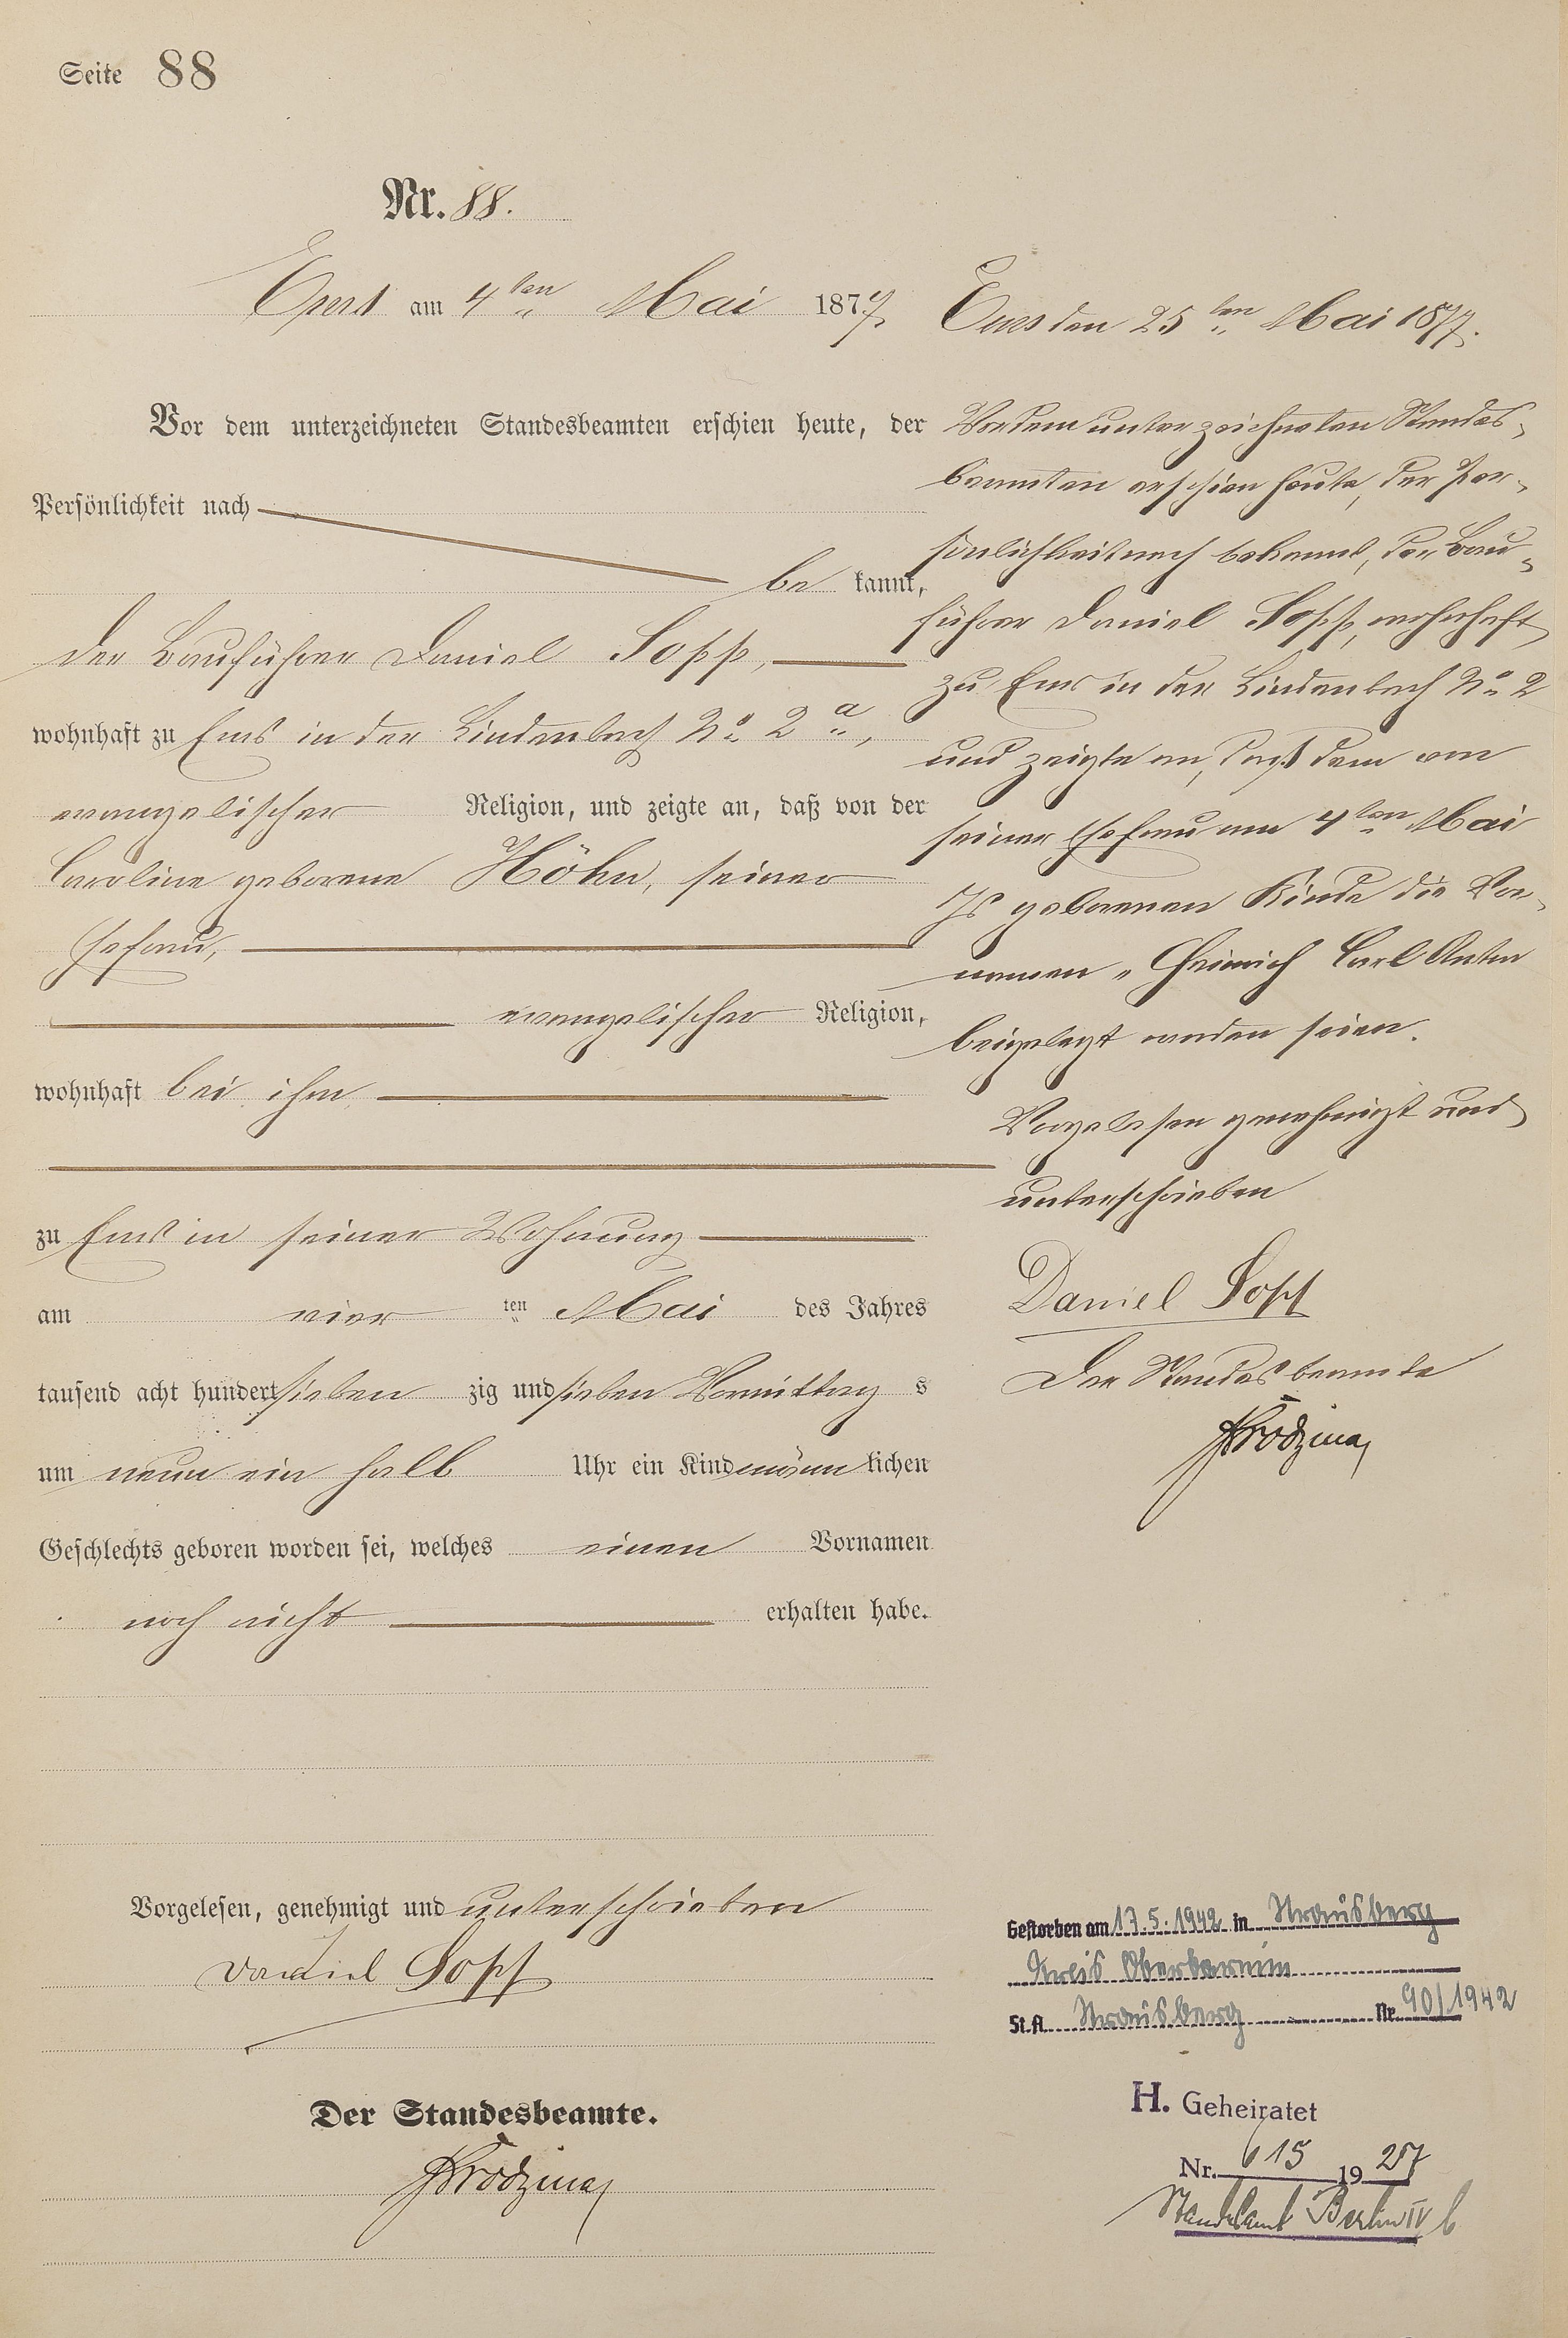 Seite 88
Nr. 88.
Ems am 4ten Mai 1877.
Vor dem unterzeichneten Standesbeamten erschien heute, der
Persönlichkeit nach
bekannt,
der Bauführer Daniel Sopp,
wohnhaft zu Ems in der Lindenbach No 2a,
evangelischer Religion, und zeigte an, daß von der
Caroline geborene Höhn, seiner
Ehefrau,
evangelischer Religion,
wohnhaft bei ihm
zu Ems in seiner Wohnung
am vierten Mai des Jahres
tausend acht hundert siebenzig und sieben Vormittags
um neun ein halb Uhr ein Kind männlichen
Geschlechts geboren worden sei, welches einen Vornamen
noch nicht erhalten habe.
Vorgelesen, genehmigt und unterschrieben
Daniel Sopp
Der Standesbeamte.
Ems den 25ten Mai 1877.
Vor dem unterzeichneten Standes-
beamten erschien heute, der Per-
sönlichkeit nach bekannt, der Bau-
führer Daniel Sopp, wohnhaft
zu Ems in der Lindenbach No 2
und zeigte an, daß dem von
seiner Ehefrau am 4ten Mai
Js geborenen Kinde die Vor-
namen „Heinrich Carl Anton
beigelegt worden seien.
Vorgelesen genehmigt und
unterschrieben
Daniel Sopp
Der Standesbeamte
Gestorben am 17.5.1942 in Strausberg
Kreis Oberbarnim
St.A. Strausberg Nr. 90/1942
H. Geheiratet
Nr. 615 1927
Standesamt Berlin IV b